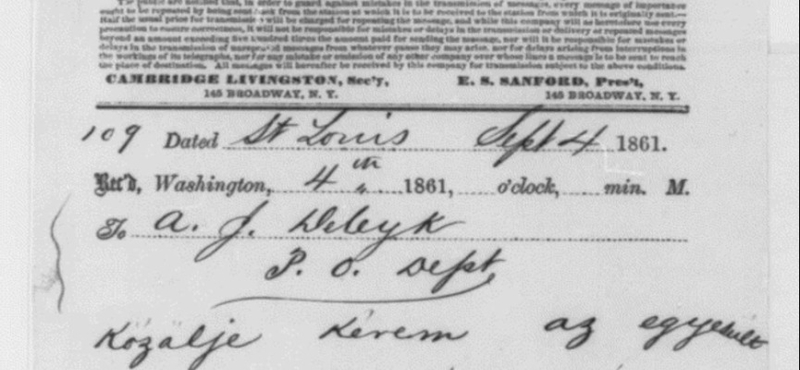 The public are notified that, in order to guard against mistakes in the transmission of messages, every message of importance
ought to be repeated by being sent back from the station at which it is to be received to the station from which it is originally sent.—
Half the usual price for transmission will be charged for repeating the message, and while this company will as heretofore use every
precaution to ensure correctness, it will not be responsible for mistakes or delays in the transmission or delivery of repeated messages
beyond an amount exceeding five hundred times the amount paid for sending the message, nor will it be responsible for mistakes or
delays in the transmission of unrepeated messages from whatever cause they may arise, nor for delays arising from interruptions in
the workings of its telegraphs, nor for any mistake or omission of any other company over whose lines a message is to be sent to reach
the place of destination. All messages will hereafter be received by this company for transmission subject to the above conditions.
CAMBRIDGE LIVINGSTON, Sec'y, E. S. SANFORD, Pres't,
145 BROADWAY, N. Y. 145 BROADWAY, N. Y.
109 Dated St Louis Sept 4 1861.
Rec'd, Washington, 4th 1861, o'clock, min. M.
To A. J.
P. O. Dept
Közölje kérem az